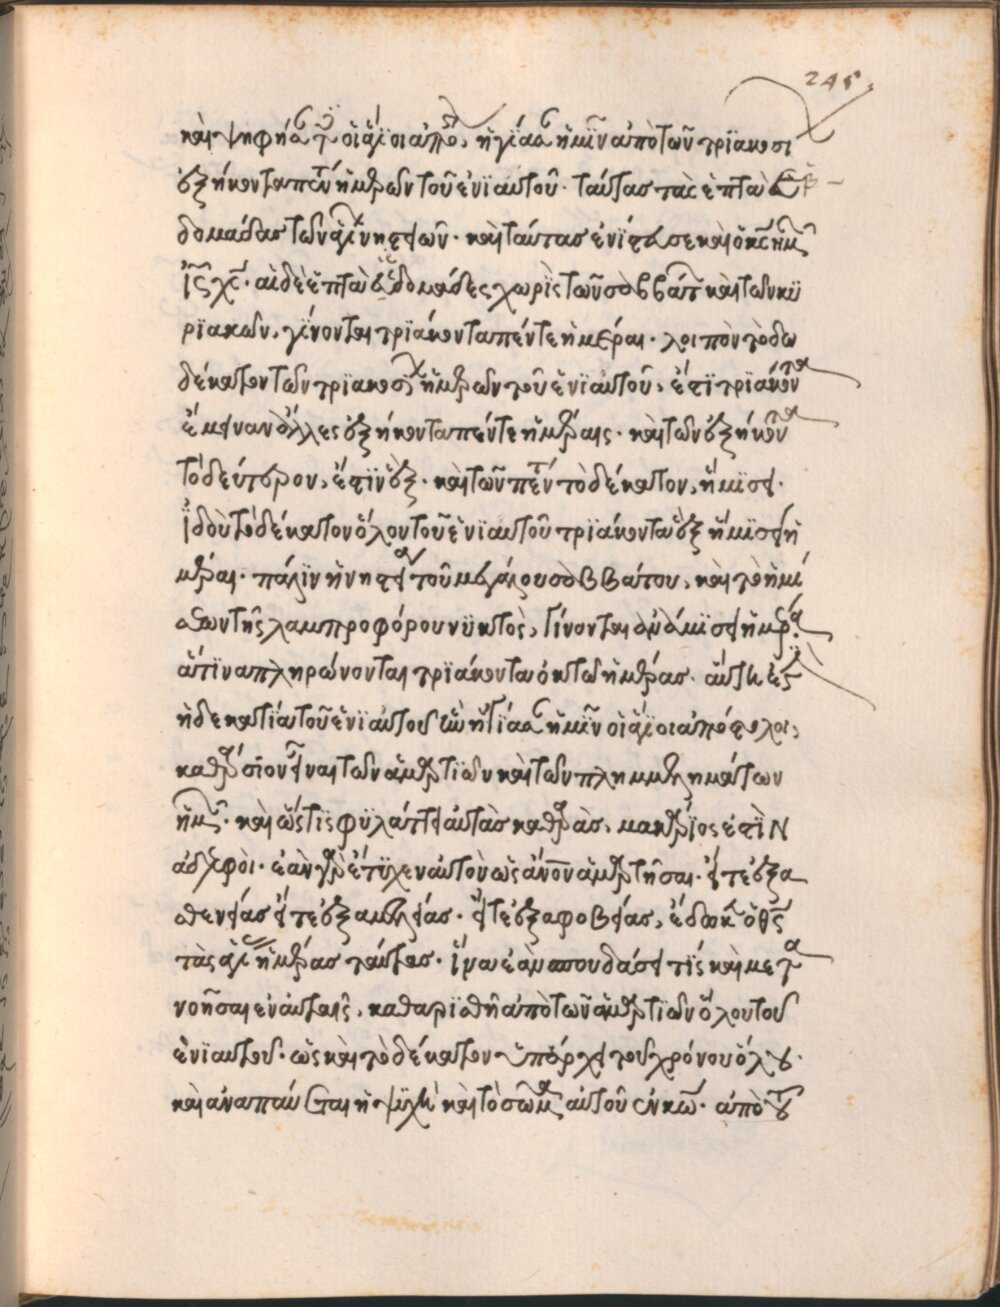 245
καὶ ψηφήσαντες οἱ ἅγιοι ἀπόστολοι, ἡγίασαν ἡμῖν ἀπὸ τῶν τριακοσί
εξήκοντα πέντε ἡμερῶν τοῦ ἐνιαυτοῦ· ταύτας τὰς ἑπτὰ ἑβ-
δομάδας τῶν ἁγίων νηστειῶν· καὶ ταύτας ἐνίστευσε καὶ ὁ κύριος ἡμῶν
ἰς χς· αἱ δὲ ἑπτὰ ἑβδομάδες χωρὶς τῶν σαββάτων καὶ τῶν κυ
ριακῶν, γίνονται τριάκοντα πέντε ἡμέραι· λοιπὸν τὸ δω
δέκατον τῶν τριακοσίων ἡμερῶν τοῦ ἐνιαυτοῦ, ἐστὶ τριάκοντα
ἔμειναν ἄλλες ἑξήκοντα πέντε ἡμέραις· καὶ τῶν ἑξήκοντα
τὸ δεύτερον, ἐστὶν ἕξ· καὶ τῶν πέντε τὸ δέκατον, ἥμισυ·
ἰδοὺ τὸ δέκατον ὅλον τοῦ ἐνιαυτοῦ τριάκοντα ἓξ ἥμισυ ἡ
μέραι· πάλιν ἡ νηστεία τοῦ μεγάλου σαββάτου, καὶ τὸ ἡμί
συ τῆς λαμπροφόρου νυκτὸς, γίνονται ἥμισυ ἡμέρα
ἅτινα πληρώνονται τριάκοντα ὀκτὼ ἡμέρας· αὕτη ἐστὶν
ἡ δεκατία τοῦ ἐνιαυτοῦ ἣν ἡγίασαν ἡμῖν οἱ ἅγιοι ἀπόστολοι,
καθάρσιον εἶναι τῶν ἁμαρτιῶν καὶ τῶν πλημμελημάτων
ἡμῶν· καὶ ὅστις φυλάττει αὐτὰς καθαρὰς, μακάριος ἐστὶν
ἀδελφοί· ἐὰν γὰρ ἔτυχεν αὐτὸν ὡς ἄνθρωπον ἁμαρτῆσαι· εἴτε ἐξ ἀ
σθενείας εἴτε ἐξ ἀμελείας· εἴτε ἐξ ἀφοβείας, ἔδωκεν ὁ θεὸς
τὰς ἁγίας ἡμέρας ταύτας· ἵνα ἐὰν σπουδάσει τίς καὶ μετα
νοῆσαι ἐν αὐταῖς, καθαρισθῆ ἀπὸ τῶν ἁμαρτιῶν ὅλου τοῦ
ἐνιαυτοῦ· ὡς καὶ τὸ δέκατον ὑπάρχει τοῦ χρόνου ὅλου·
καὶ ἀναπαύεται ἡ ψυχὴ καὶ τὸ σῶμα αὐτοῦ ἐν κῶ· ἀπὸ τοῦ